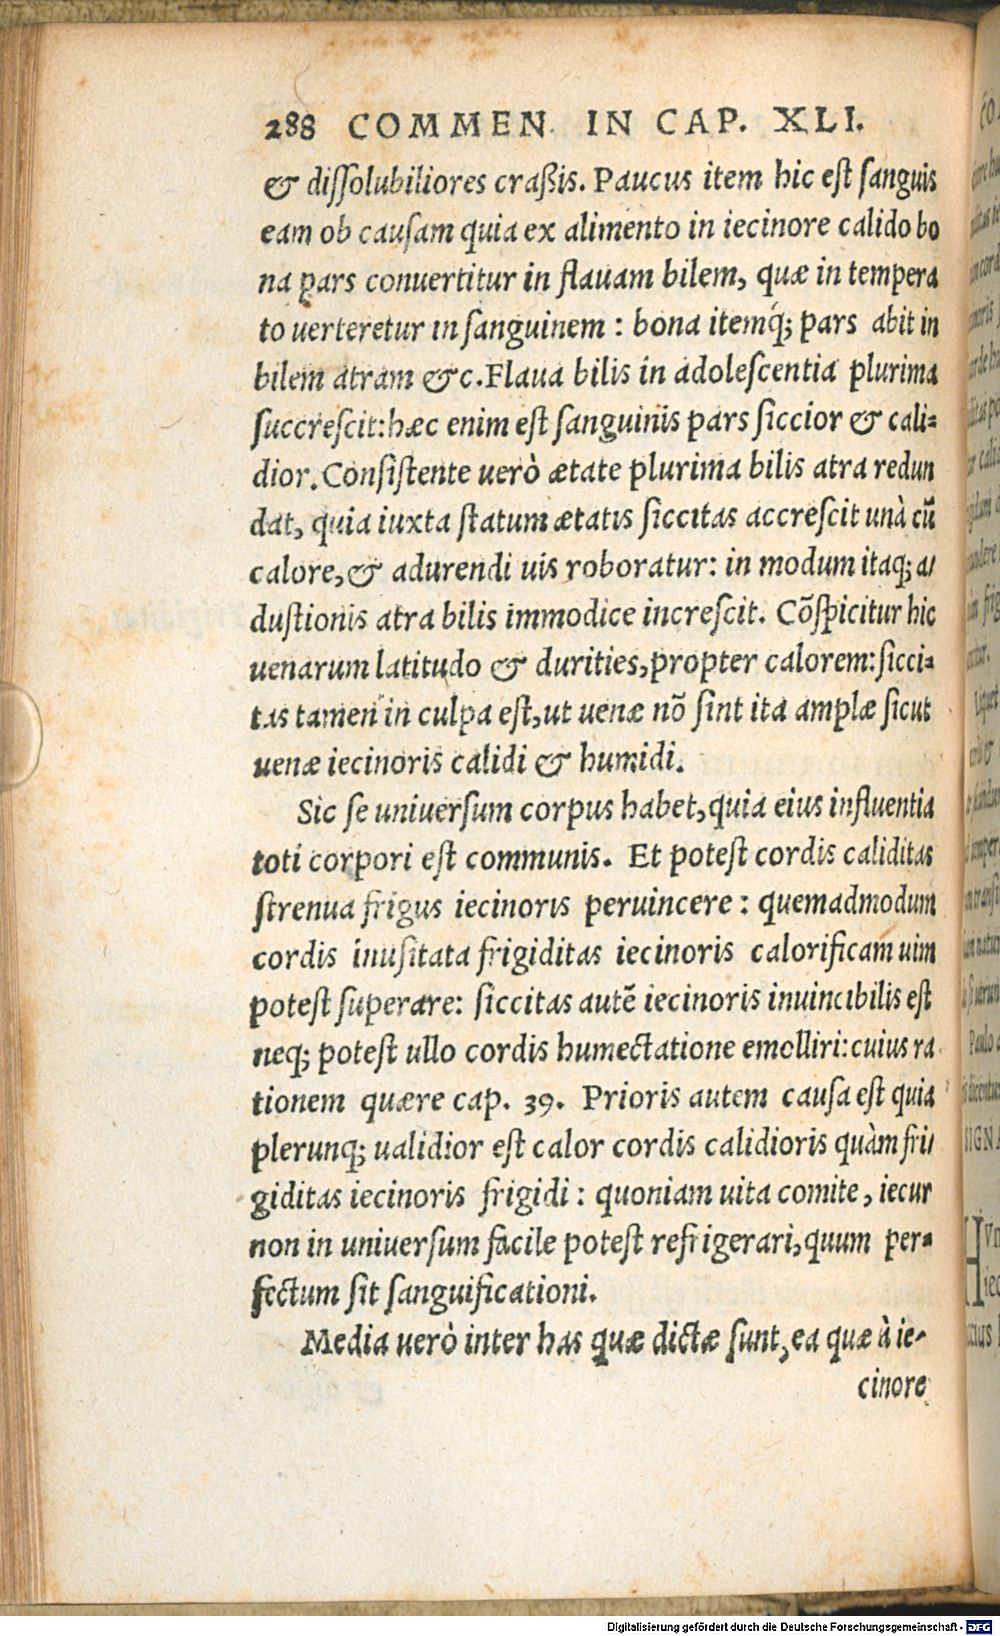 288 COMMEN. IN CAP. XLI.
& diſſolubiliores craßis. Paucus item hic eſt ſanguis
eam ob cauſam quia ex alimento in iecinore calido bo
na pars conuertitur in flauam bilem, quæ in tempera
to uerteretur in ſanguinem : bona itemq́; pars abit in
bilem atram &c. Flaua bilis in adoleſcentia plurima
ſuccreſcit: hæc enim eſt ſanguinis pars ſiccior & cali-
dior. Conſiſtente uerò ætate plurima bilis atra redun
dat, quia iuxta ſtatum ætatis ſiccitas accreſcit unà cũ
calore, & adurendi uis roboratur: in modum itaq; a/
duſtionis atra bilis immodice increſcit. Cõſpicitur hic
uenarum latitudo & durities, propter calorem: ſicci-
tas tamen in culpa eſt, ut uenæ nõ ſint ita amplæ ſicut
uenæ iecinoris calidi & humidi.
Sic ſe uniuerſum corpus habet, quia eius influentia
toti corpori eſt communis. Et poteſt cordis caliditas
ſtrenua frigus iecinoris peruincere : quemadmodum
cordis inuſitata frigiditas iecinoris calorificam uim
poteſt ſuperare: ſiccitas autẽ iecinoris inuincibilis eſt
neq; poteſt ullo cordis humectatione emolliri: cuius ra
tionem quære cap. 39. Prioris autem cauſa eſt quia
plerunq; ualidior eſt calor cordis calidioris quàm fri/
giditas iecinoris frigidi : quoniam uita comite, iecur
non in uniuerſum facile poteſt refrigerari, quum per-
fectum ſit ſanguificationi.
Media uerò inter has quæ dictæ ſunt, ea quæ à ie-
cinore
Digitalisierung gefördert durch die Deutsche Forschungsgemeinschaft - DFG